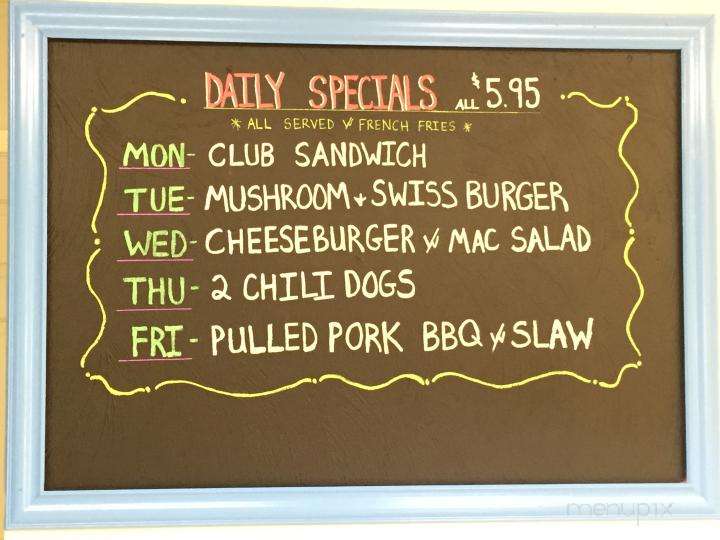 DAILY SPECIALS ALL $5.95
* ALL SERVED W/ FRENCH FRIES *
MON- CLUB SANDWICH
TUE- MUSHROOM + SWISS BURGER
WED- CHEESEBURGER W/ MAC SALAD
THU- 2 CHILI DOGS
FRI- PULLED PORK BBQ W/ SLAW
menupix